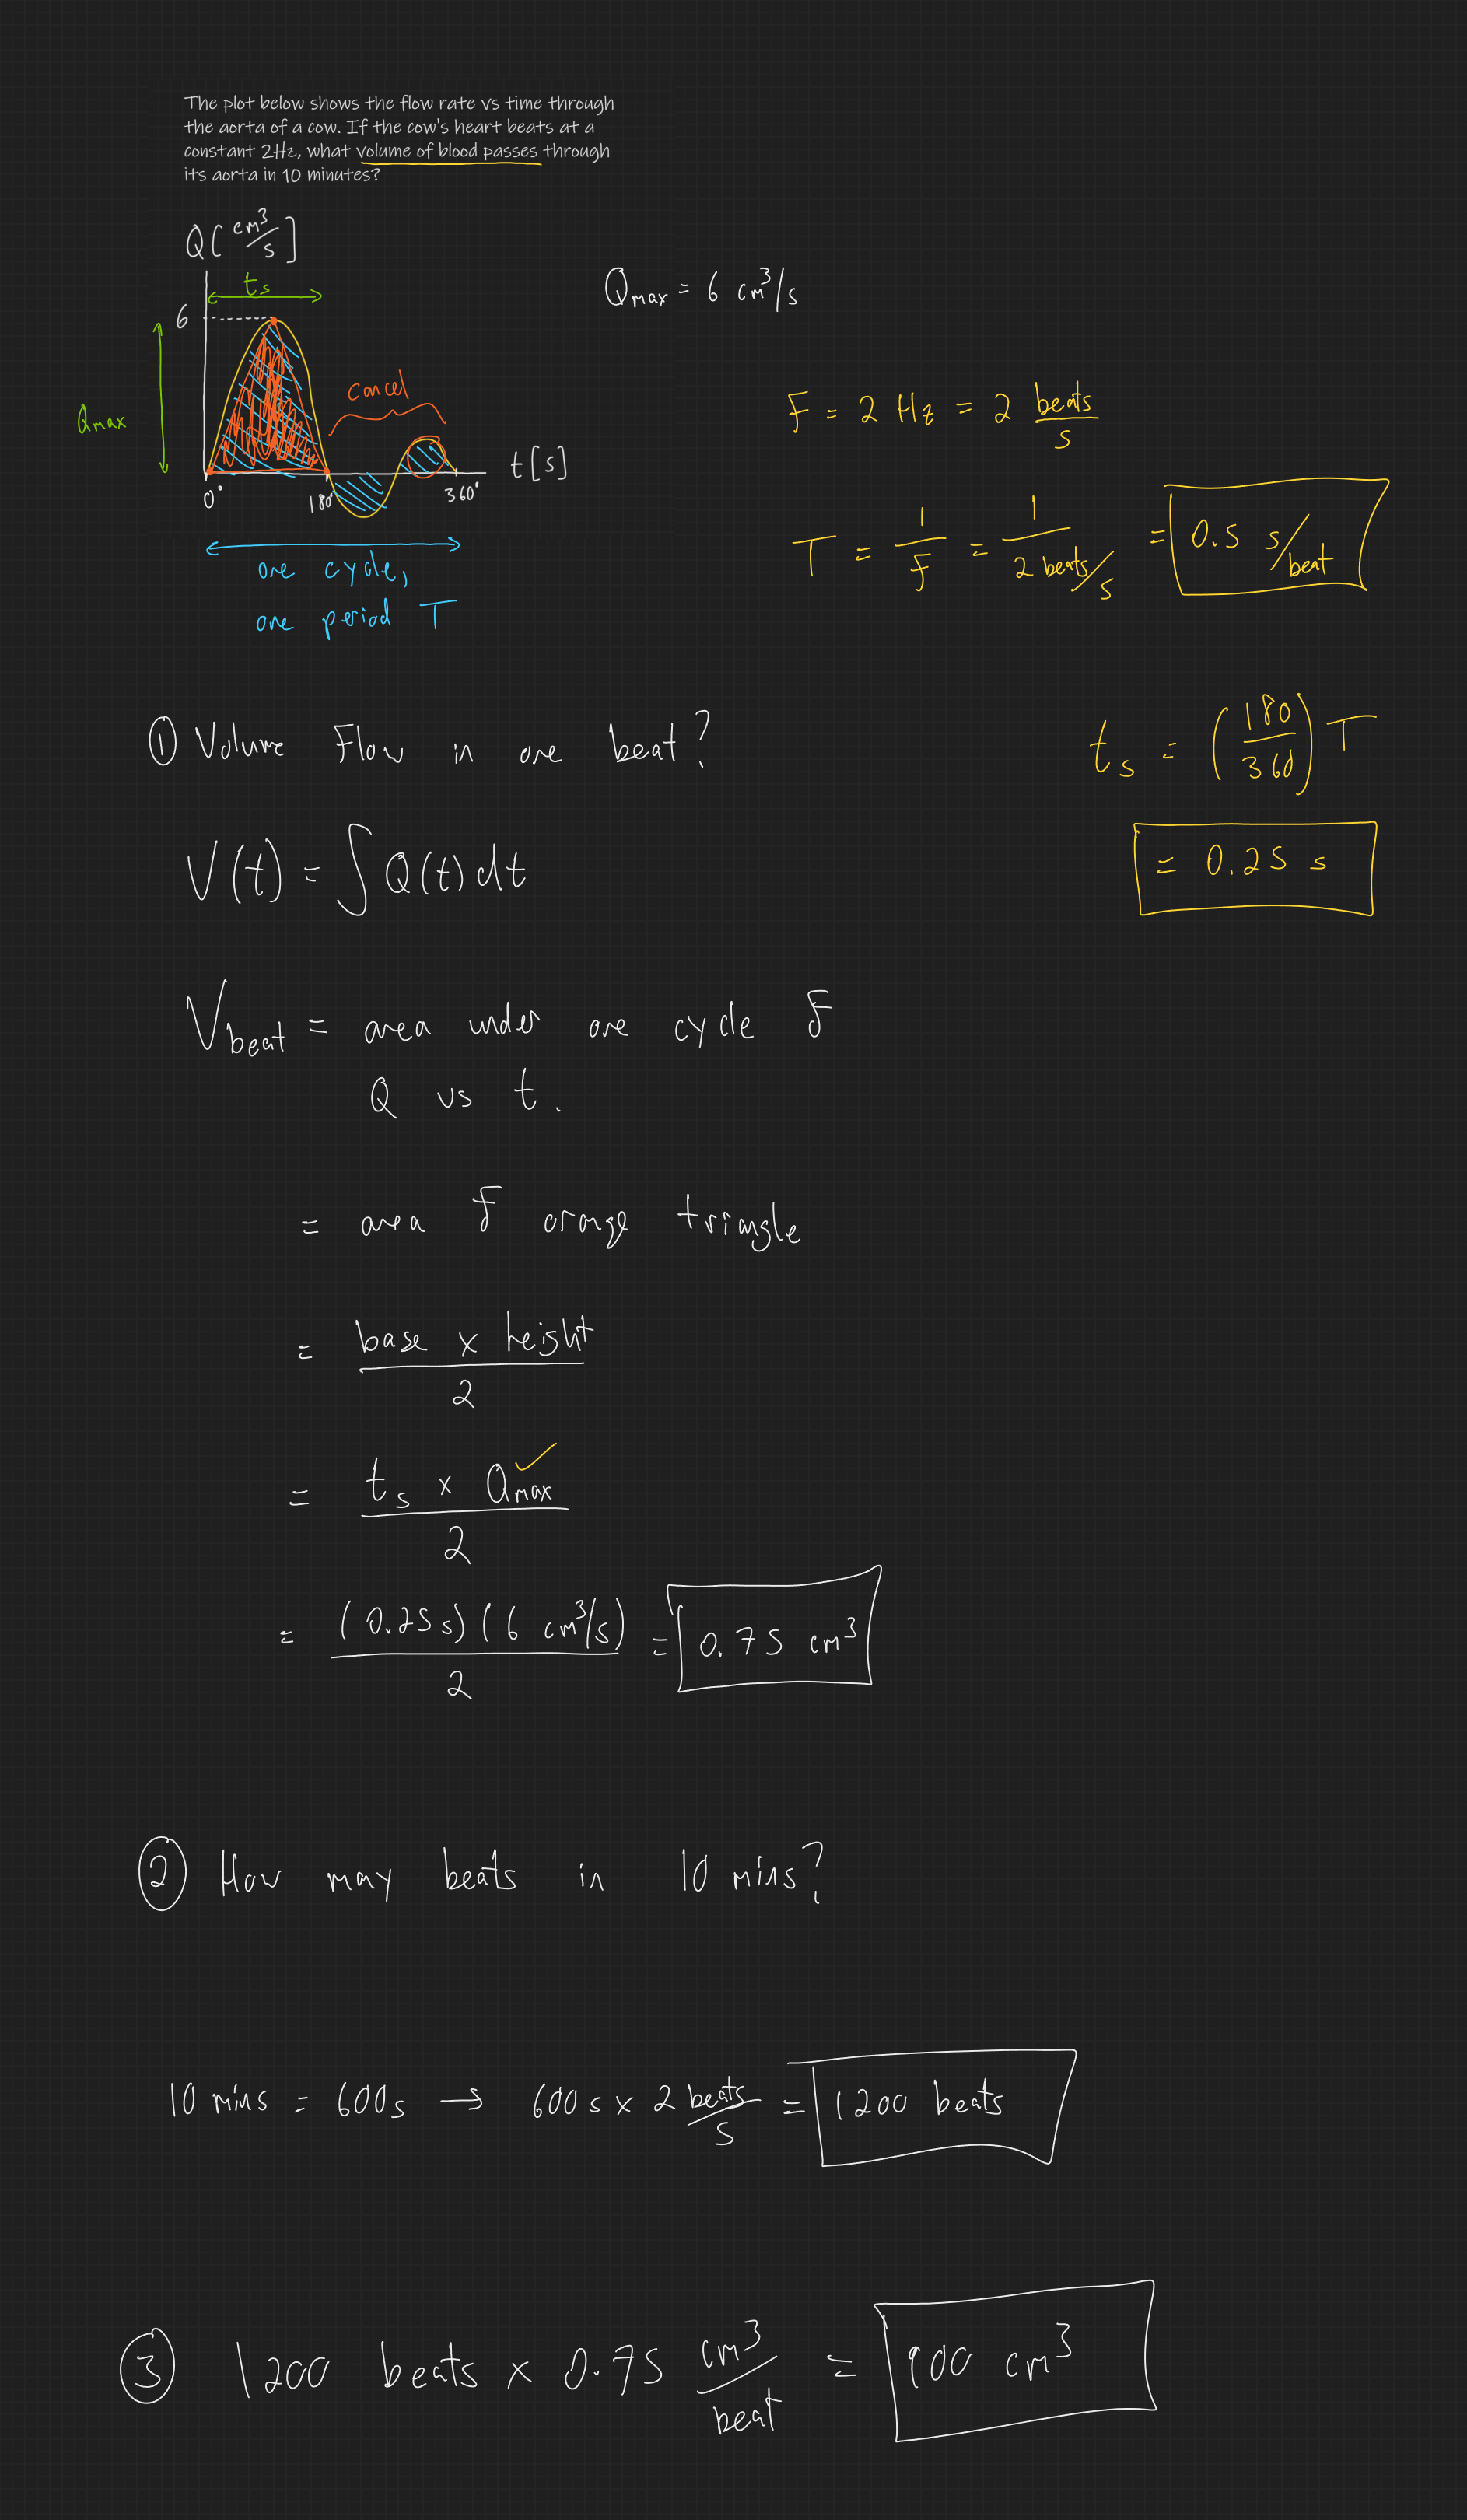 The plot below shows the flow rate vs time through
the aorta of a cow. If the cow's heart beats at a
constant 2Hz, what volume of blood passes through
its aorta in 10 minutes?
Q [cm³/s]
ts
6
Qmax
cancel
t [s]
0°
180°
360°
one cycle,
one period T
Qmax = 6 cm³/s
F = 2 Hz = 2 beats/s
T = 1/F = 1/(2 beats/s) = 0.5 s/beat
① Volume Flow in one beat?
ts = (180/360) T
= 0.25 s
V(t) = ∫ Q(t) dt
Vbeat = area under one cycle of
Q vs t.
= area of orange triangle
= base x height / 2
= ts x Qmax ✓ / 2
= (0.25 s)(6 cm³/s) / 2 = 0.75 cm³
② How may beats in 10 mins?
10 mins = 600s → 600 s x 2 beats/s = 1200 beats
③ 1200 beats x 0.75 cm³/beat = 900 cm³